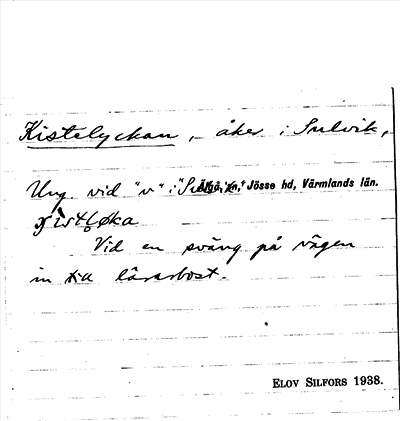 Kistelyckan, åker i Sulvik,
Ung. vid "v" i "Sulvik". Älgå sn, Jösse hd, Värmlands län.
Vid en sväng på vägen
in till lärarbost.
ELOV SILFORS 1938.